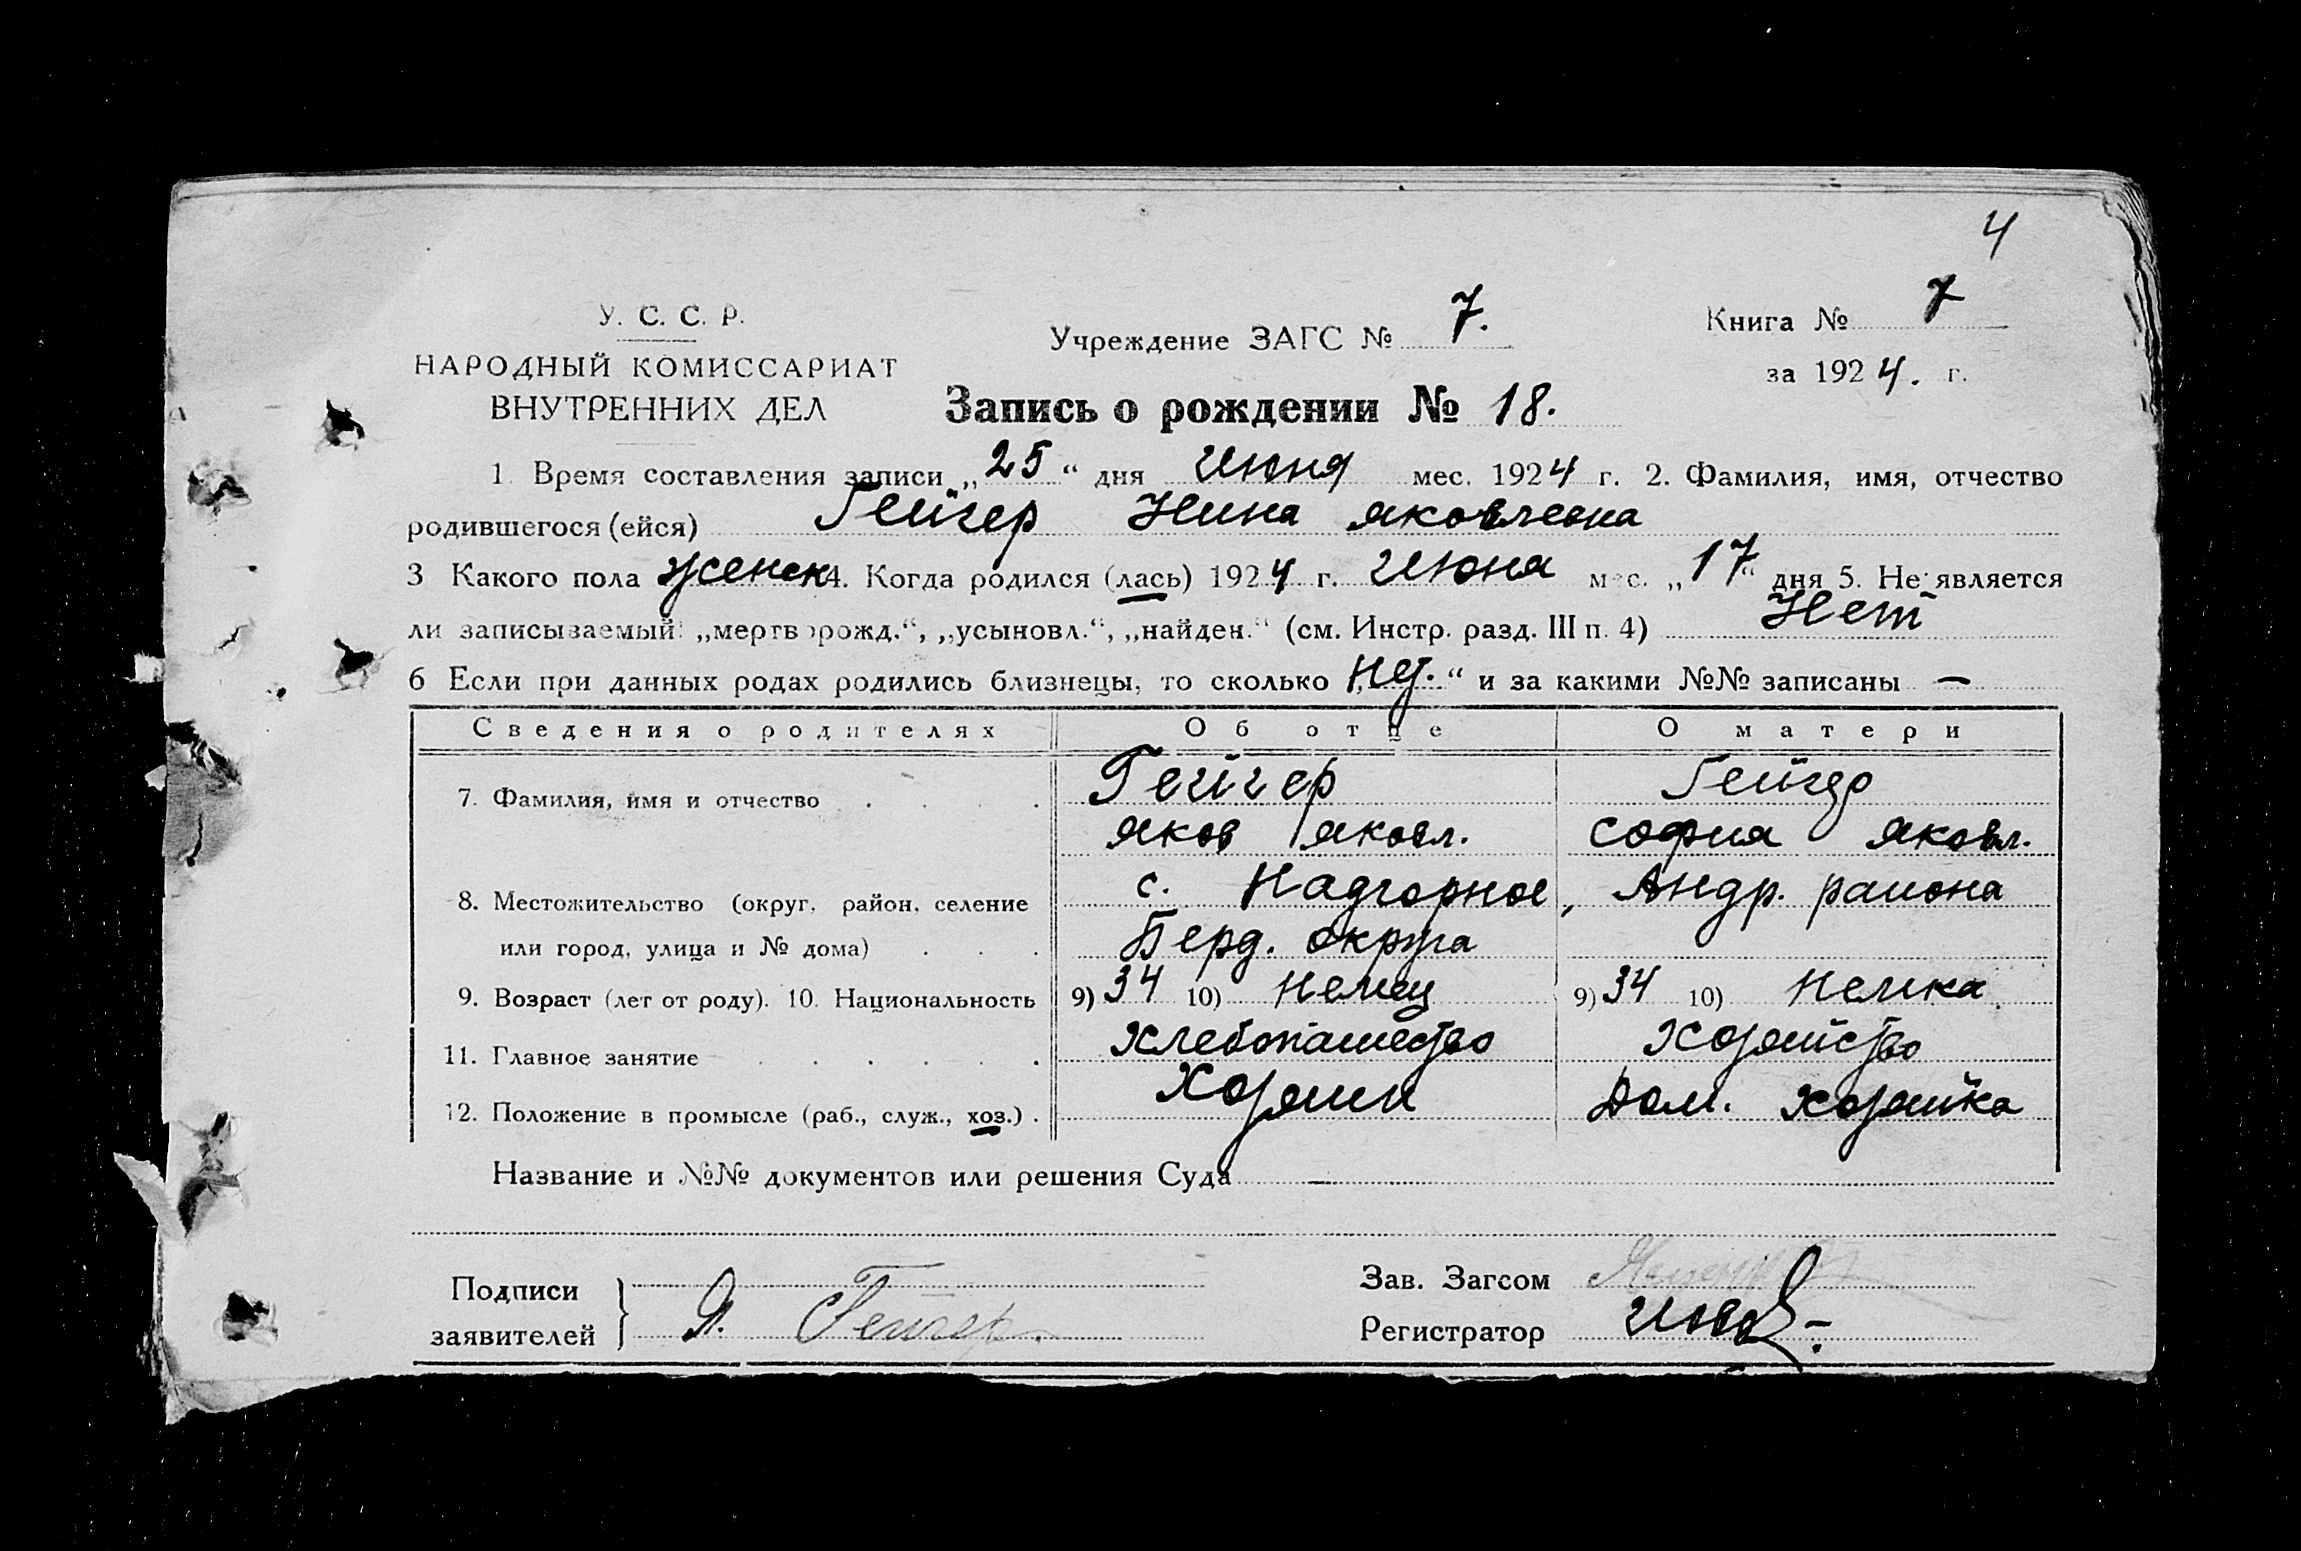 4
У. С. С. Р.
НАРОДНЫЙ КОМИССАРИАТ
ВНУТРЕННИХ ДЕЛ
Учреждение ЗАГС № 7.
Книга № 7
за 1924. г.
Запись о рождении № 18.
1. Время составления записи „25“ дня Июня мес. 1924 г. 2. Фамилия, имя, отчество
родившегося (ейся) Гейгер Нина Яковлевна
3 Какого пола женск 4. Когда родился (лась) 1924 г. Июня мес. „17“ дня 5. Не является
ли записываемый: „мертворожд.“, „усыновл.“, „найден.“ (см. Инстр. разд. III п. 4) Нет
6 Если при данных родах родились близнецы, то сколько „нет.“ и за какими №№ записаны —
Сведения о родителях Об отце О матери
7. Фамилия, имя и отчество . . . . Гейгер Гейгер
Яков Яковл. София Яковл.
8. Местожительство (округ, район, селение с. Надгорное, Андр. района
или город, улица и № дома) . . . Берд. округа
9. Возраст (лет от роду). 10. Национальность 9) 34 10) Немец 9) 34 10) Немка
11. Главное занятие . . . . . . Хлебопашество Хозяйство
12. Положение в промысле (раб., служ., хоз.) . Хозяин Дом. хозяйка
Название и №№ документов или решения Суда —
Подписи
заявителей } Я. Гейгер.
Зав. Загсом
Регистратор